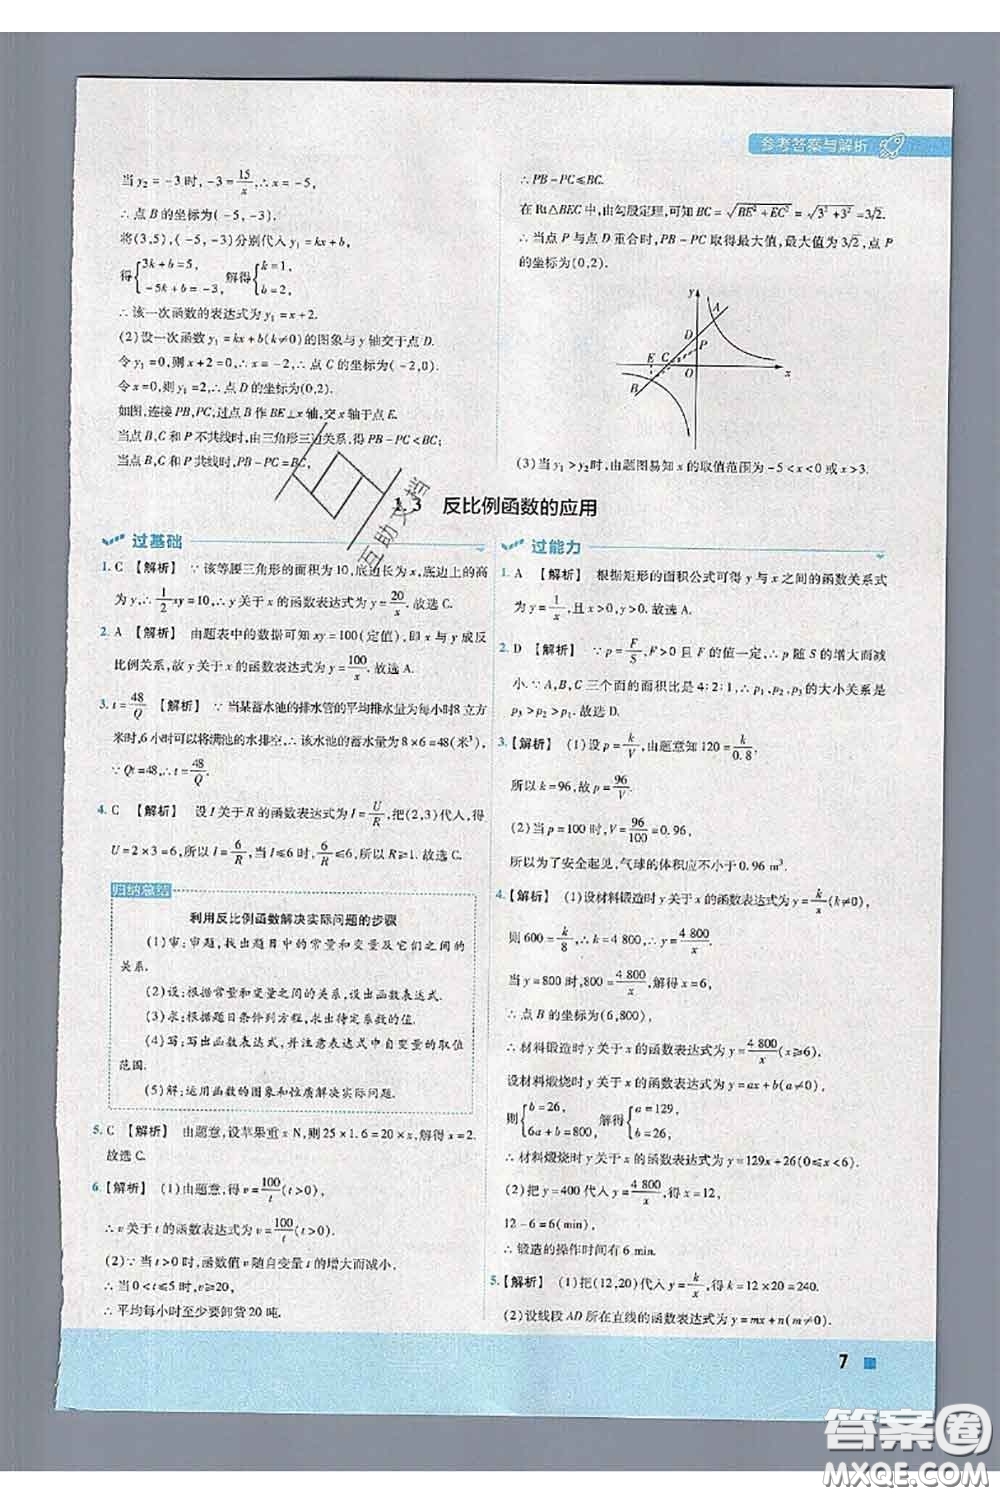 参考答案与解析
当 y₂ = -3时, -3 = 15/x, ∴ x = -5,
∴ 点 B 的坐标为( -5, -3).
将(3,5),( -5, -3)分别代入 y₁ = kx + b,
得{3k + b = 5, -5k + b = -3, 解得{k = 1, b = 2,
∴ 该一次函数的表达式为 y₁ = x + 2.
(2)设一次函数 y₁ = kx + b(k≠0)的图象与 y 轴交于点 D.
令 y₁ = 0,则 x + 2 = 0, ∴ x = -2, ∴ 点 C 的坐标为( -2,0).
令 x = 0,则 y₁ = 2, ∴ 点 D 的坐标为(0,2).
如图,连接 PB,PC,过点 B 作 BE⊥x 轴,交 x 轴于点 E.
当点 B,C 和 P 不共线时,由三角形三边关系,得 PB - PC < BC;
当点 B,C 和 P 共线时,PB - PC = BC,
∴ PB - PC≤BC.
在 Rt△BEC 中,由勾股定理,可知 BC = √(BE² + EC²) = √(3² + 3²) = 3√2.
∴ 当点 P 与点 D 重合时,PB - PC 取得最大值,最大值为 3√2,点
P 的坐标为(0,2).
y
A
D
P
E C
O
x
B
(3)当 y₁ > y₂ 时,由题图易知 x 的取值范围为 -5 < x < 0 或 x > 3.
1.3 反比例函数的应用
过基础
1. C 【解析】 ∵ 该等腰三角形的面积为 10,底边长为 x,底边上的高
为 y, ∴ 1/2 xy = 10, ∴ y 关于 x 的函数表达式为 y = 20/x. 故选 C.
2. A 【解析】 由题表中的数据可知 xy = 100(定值),即 x 与 y 成反
比例关系,故 y 关于 x 的函数表达式为 y = 100/x. 故选 A.
3. t = 48/Q 【解析】 ∵ 当某蓄水池的排水管的平均排水量为每小时8 立方
米时,6 小时可以将满池的水排空, ∴ 该水池的蓄水量为 8 × 6 = 48(米³),
∵ Qt = 48, ∴ t = 48/Q.
4. C 【解析】 设 I 关于 R 的函数表达式为 I = U/R,把(2,3)代人,得
U = 2 × 3 = 6,所以 I = 6/R,当 I≤6 时,6/R≤6,所以 R≥1. 故选 C.
归纳总结
利用反比例函数解决实际问题的步骤
(1)审:审题,找出题目中的常量和变量及它们之间的
关系.
(2)设:根据常量和变量之间的关系,设出函数表达式.
(3)求:根据题目条件列方程,求出待定系数的值.
(4)写:写出函数表达式,并注意表达式中自变量的取值
范围.
(5)解:运用函数的图象和性质解决实际问题.
5. C 【解析】 由题意,设苹果重 x N,则 25 × 1.6 = 20 × x,解得 x = 2.
故选 C.
6. 【解析】 (1)由题意,得 v = 100/t (t > 0),
∴ v 关于 t 的函数表达式为 v = 100/t (t > 0).
(2) ∵ 当 t > 0 时,函数值 v 随自变量 t 的增大而减小,
∴ 当 0 < t≤5 时,v≥20,
∴ 平均每小时至少要卸货 20 吨.
过能力
1. A 【解析】 根据矩形的面积公式可得 y 与 x 之间的函数关系式
为 y = 1/x,且 x > 0,y > 0. 故选 A.
2. D 【解析】 ∵ p = F/S,F > 0 且 F 的值一定, ∴ p 随 S 的增大而减
小. ∵ A,B,C 三个面的面积比是 4:2:1, ∴ p₁,p₂,p₃ 的大小关系是
p₃ > p₂ > p₁. 故选 D.
3. 【解析】 (1)设 p = k/V,由题意知 120 = k/0.8,
所以 k = 96,故 p = 96/V.
(2)当 p = 100 时,V = 96/100 = 0.96,
所以为了安全起见,气球的体积应不小于 0.96 m³.
4. 【解析】 (1)设材料锻造时 y 关于 x 的函数表达式为 y = k/x (k≠0),
则 600 = k/8, ∴ k = 4 800, ∴ y = 4 800/x.
当 y = 800 时,800 = 4 800/x,解得 x = 6,
∴ 点 B 的坐标为(6,800),
∴ 材料锻造时 y 关于 x 的函数表达式为 y = 4 800/x (x≥6).
设材料煅烧时 y 关于 x 的函数表达式为 y = ax + b(a≠0),
则{b = 26, 6a + b = 800, 解得{a = 129, b = 26,
∴ 材料煅烧时 y 关于 x 的函数表达式为 y = 129x + 26(0≤x < 6)
(2)把 y = 400 代入 y = 4 800/x,得 x = 12,
12 - 6 = 6(min),
∴ 锻造的操作时间有 6 min.
5. 【解析】 (1)把(12,20)代入 y = k/x,得 k = 12 × 20 = 240.
(2)设线段 AD 所在直线的函数表达式为 y = mx + n(m≠0).
互助文档
7
答案圈
MXQE.COM